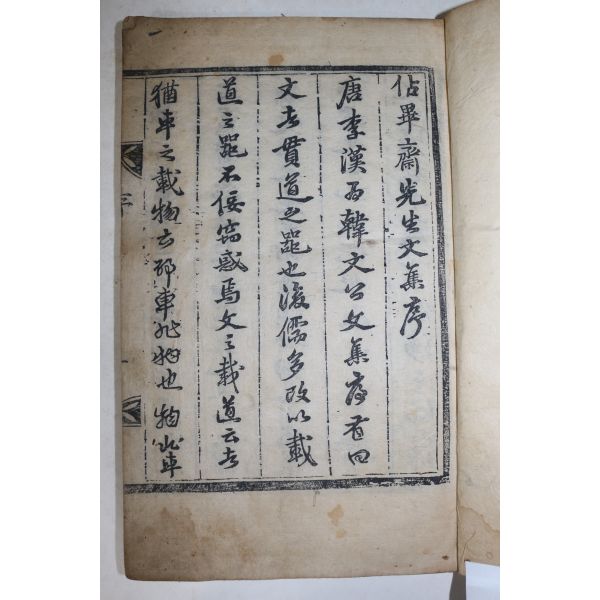 佔畢齋先生文集序
唐李漢為韓文公文集序首曰
文者貫道之器也後儒多改以載
道之器不佞竊惑焉文之載道云者
猶車之載物云耶車非物也物非車